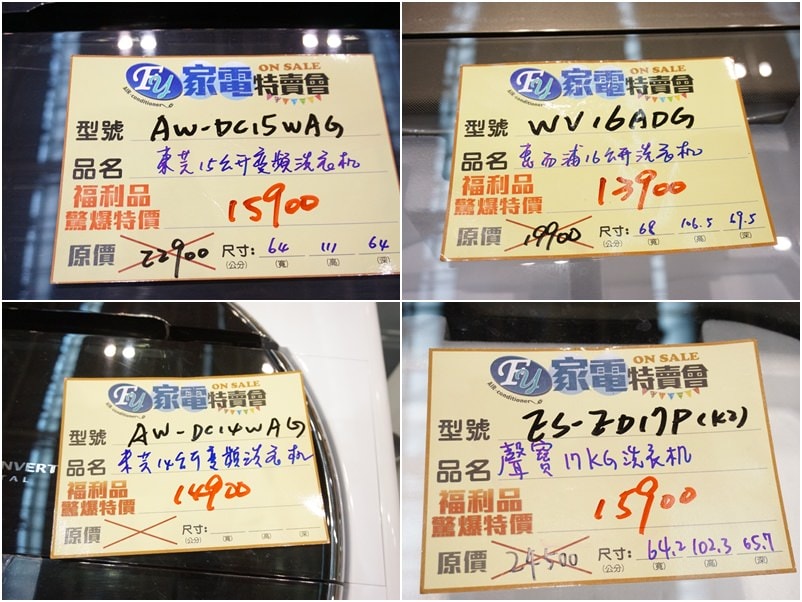 FY 家電特賣會 ON SALE
AIR conditioner
型號 AW-DC15WAG
品名 東芝15公斤變頻洗衣机
福利品
驚爆特價 15900
原價 22900 尺寸: 64 111 64
(公分) (寬) (高) (深)
FY 家電特賣會 ON SALE
AIR conditioner
型號 WV16ADG
品名 惠而浦16公斤洗衣机
福利品
驚爆特價 13900
原價 19900 尺寸: 68 106.5 69.5
(公分) (寬) (高) (深)
FY 家電特賣會 ON SALE
AIR conditioner
型號 AW-DC14WAG
品名 東芝14公斤變頻洗衣机
福利品
驚爆特價 14900
原價 尺寸:
(公分) (寬) (高) (深)
NVERT
TAL
FY 家電特賣會 ON SALE
AIR conditioner
型號 ES-ED17P(K2)
品名 聲寶17KG洗衣机
福利品
驚爆特價 15900
原價 24500 尺寸: 64.2 102.3 65.7
(公分) (寬) (高) (深)